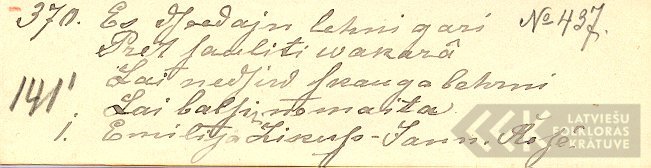 370. Es dseedajn lehni gari No 437.
Pret sauliti wakarâ
Lai nedsird skauga behrni
141' Lai balsiņ nemaita
1. Emilija Zikuss - Jaun.
LATVIEŠU FOLKLORAS KRĀTUVE